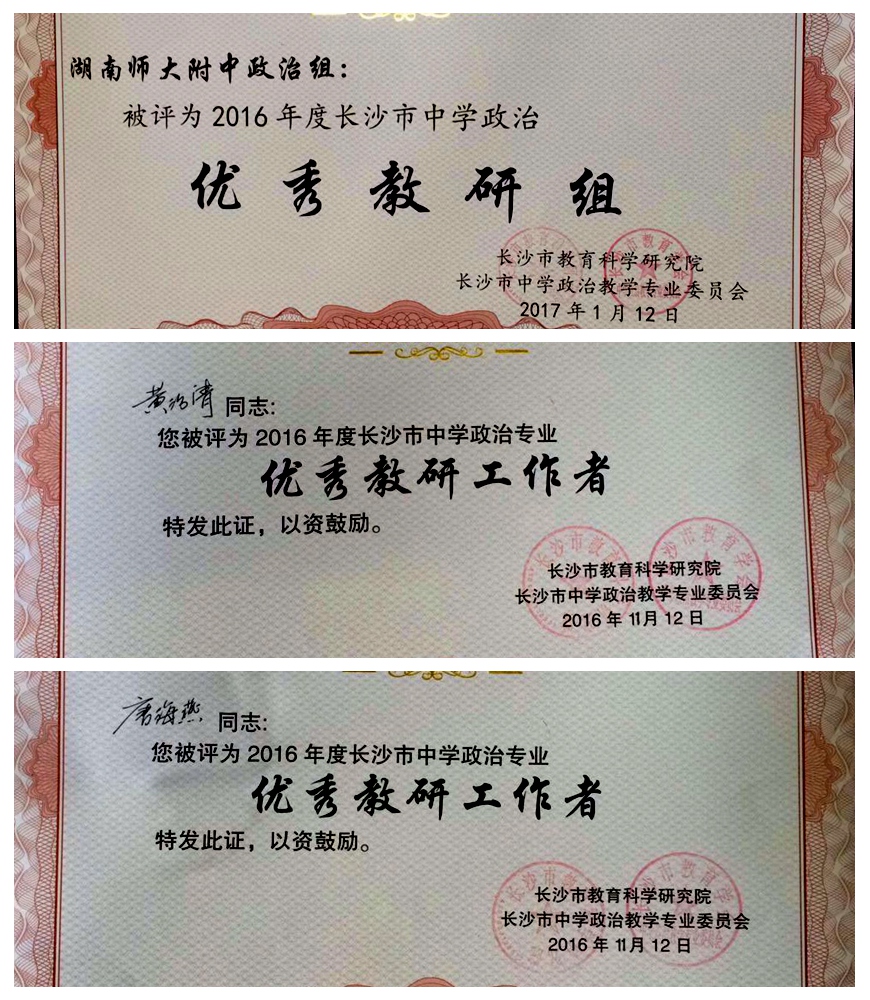 湖南师大附中政治组：
被评为2016年度长沙市中学政治
优秀教研组
长沙市教育科学研究院
长沙市中学政治教学专业委员会
2017年1月12日
黄治清 同志:
您被评为2016年度长沙市中学政治专业
优秀教研工作者
特发此证，以资鼓励。
长沙市教育科学研究院
长沙市中学政治教学专业委员会
2016年11月12日
唐海燕 同志:
您被评为2016年度长沙市中学政治专业
优秀教研工作者
特发此证，以资鼓励。
长沙市教育科学研究院
长沙市中学政治教学专业委员会
2016年11月12日